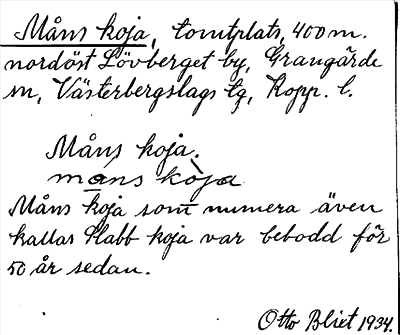 Måns koja, tomtplats, 400 m.
nordöst Lövberget by, Grangärde
sn, Västerbergslags tg, Kopp. l.
Måns koja.
mans kòja
Måns koja som numera även
kallas Slabb koja var bebodd för
50 år sedan.
Otto Blixt 1934.